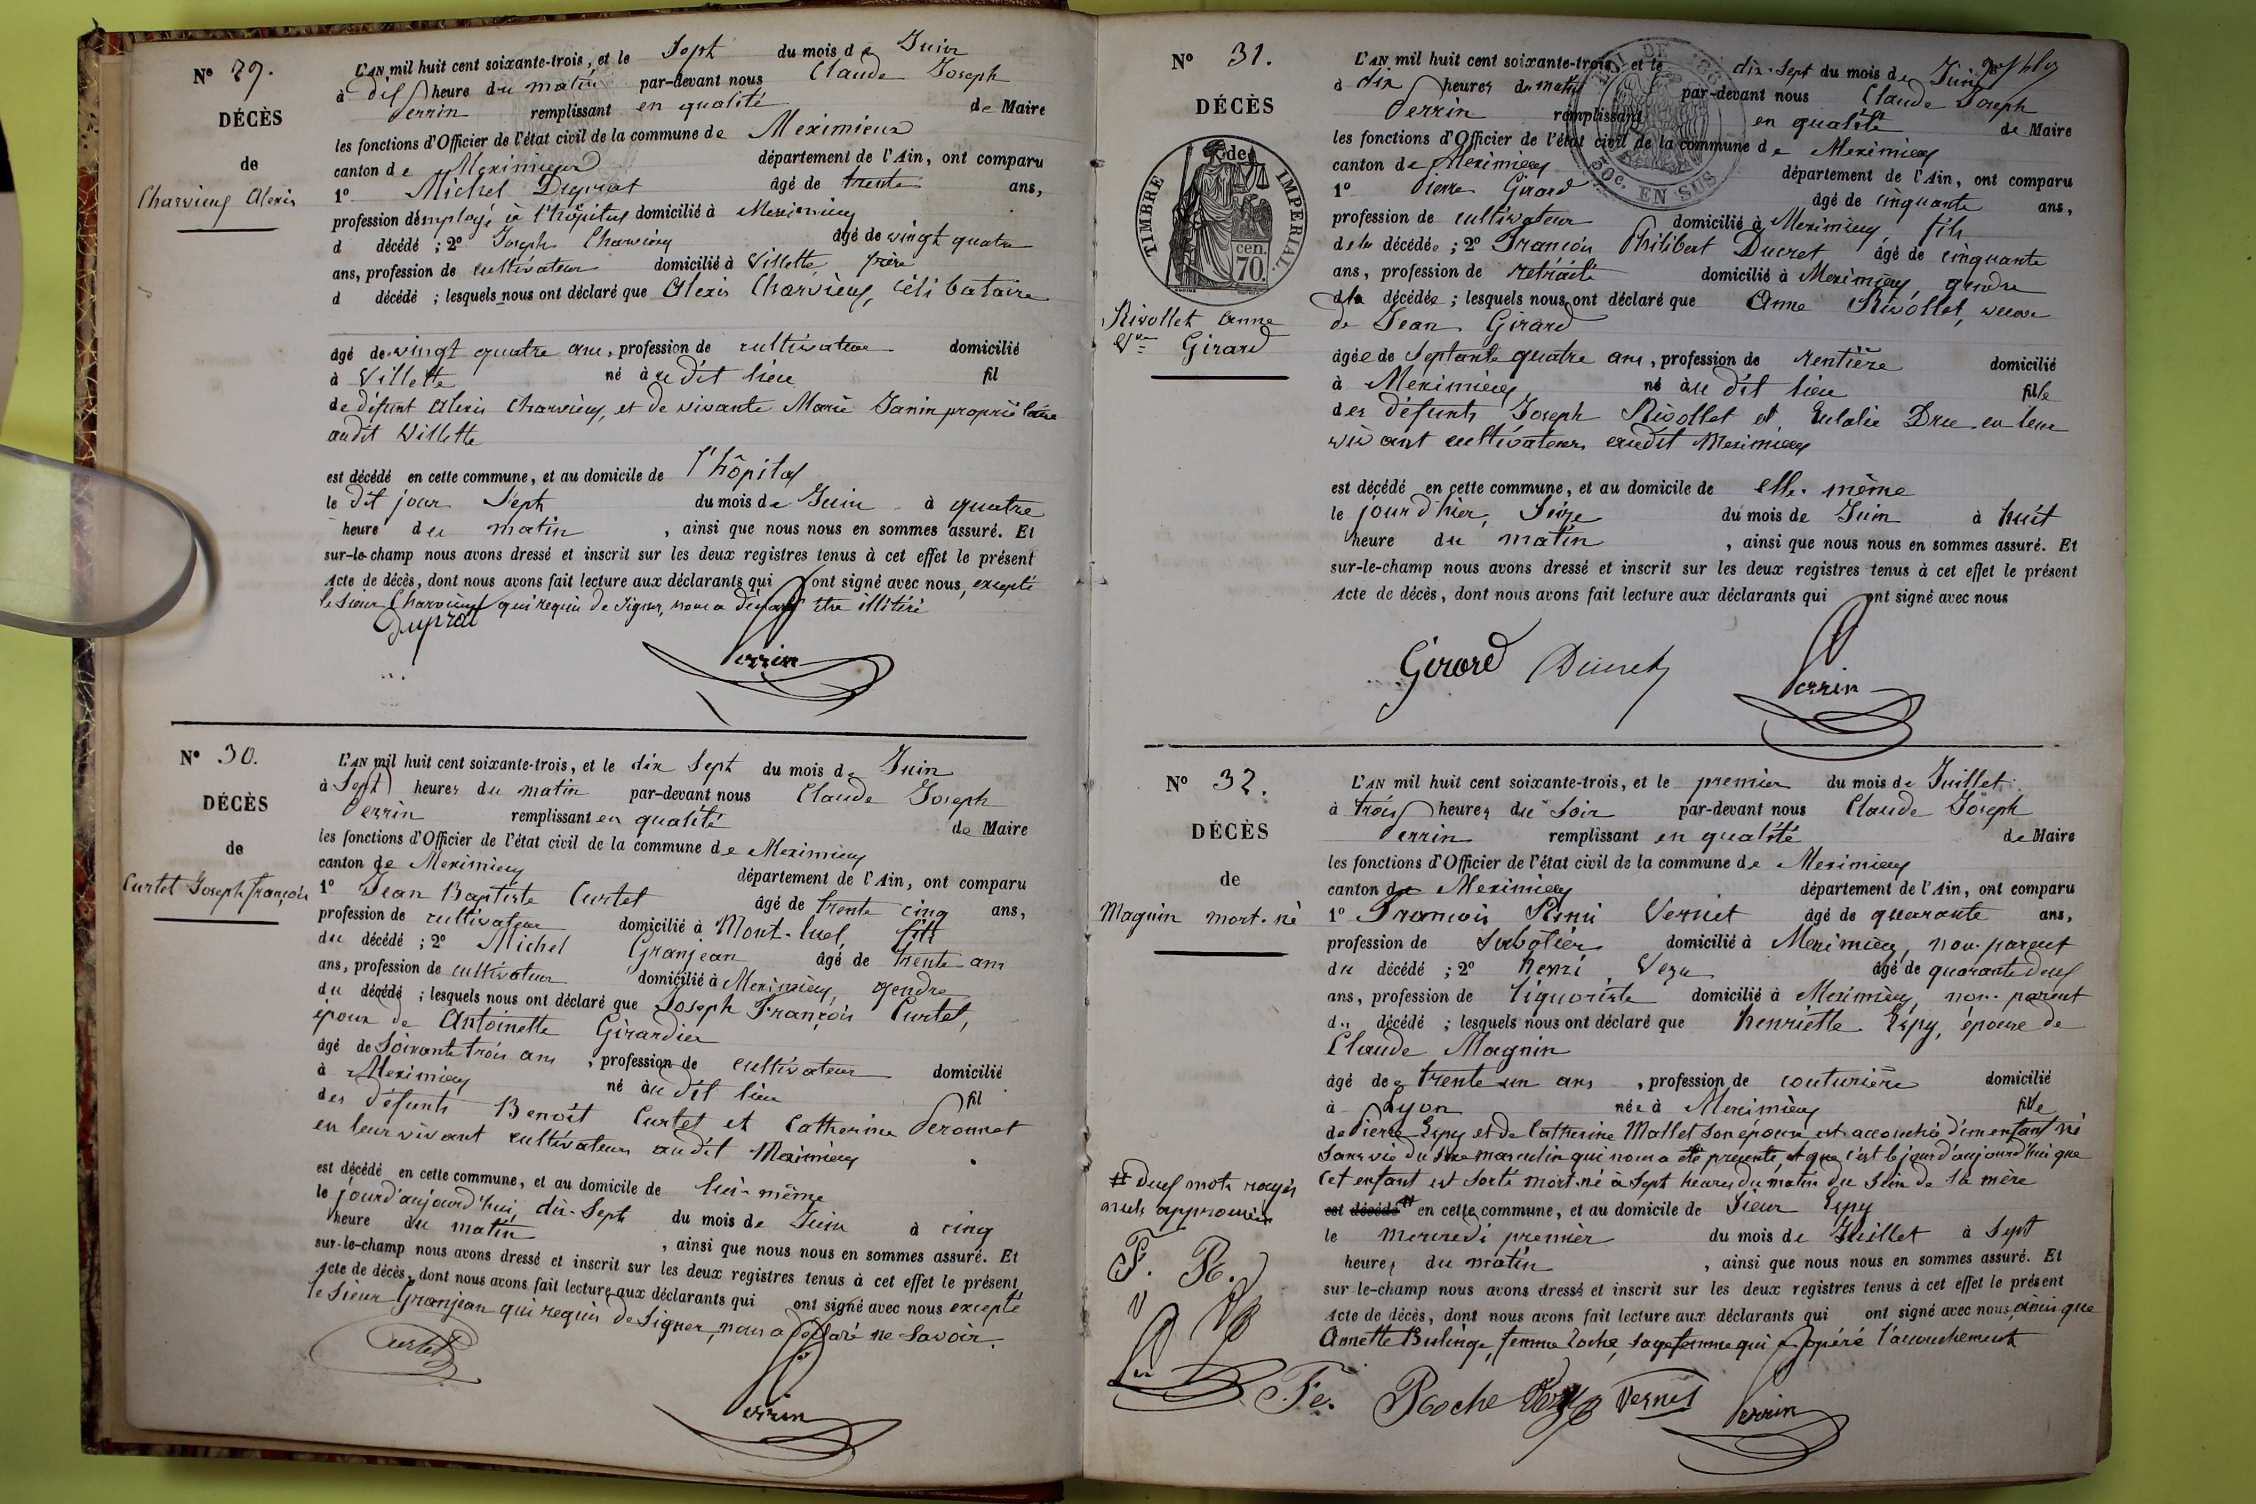 N° 29.
DÉCÈS
de
Charvieux Alexis
L'AN mil huit cent soixante-trois, et le Sept du mois de Juin
à dix heure du matin par-devant nous Claude Joseph
Perrin remplissant en qualité de Maire
les fonctions d'Officier de l'état civil de la commune de Meximieux
canton de Meximieux département de l'Ain, ont comparu
1° Michel Duprat âgé de trente ans,
profession d'employé à l'hôpital domicilié à Meximieux
d décédé ; 2° Joseph Charvieux âgé de vingt quatre
ans, profession de cultivateur domicilié à Villette frère
d décédé ; lesquels nous ont déclaré que Alexis Charvieux, célibataire
âgé de vingt quatre ans, profession de cultivateur domicilié
à Villette né à u dit lieu fil
de défunt Alexis Charvieux, et de vivante Marie Janin propriétaire
audit Villette
est décédé en cette commune, et au domicile de l'hôpital
le dit jour Sept du mois de Juin à quatre
heure du matin, ainsi que nous nous en sommes assuré. Et
sur-le-champ nous avons dressé et inscrit sur les deux registres tenus à cet effet le présent
Acte de décès, dont nous avons fait lecture aux déclarants qui ont signé avec nous, excepté
le Sieur Charvieux qui requis de signer, nous a déclaré être illitéré
Duprat
Perrin
N° 30.
DÉCÈS
de
Curtet Joseph François
L'AN mil huit cent soixante-trois, et le dix Sept du mois de Juin
à Sept heures du matin par-devant nous Claude Joseph
Perrin remplissant en qualité de Maire
les fonctions d'Officier de l'état civil de la commune de Meximieux
canton de Meximieux département de l'Ain, ont comparu
1° Jean Baptiste Curtet âgé de trente cinq ans,
profession de cultivateur domicilié à Mont-luel, fils
du décédé ; 2° Michel Granjean âgé de trente ans
ans, profession de cultivateur domicilié à Meximieux, gendre
du décédé ; lesquels nous ont déclaré que Joseph François Curtet,
époux de Antoinette Girardier
âgé de Soixante trois ans, profession de cultivateur domicilié
à Meximieux né àu dit lieu fil
des défunts Benoît Curtet et Catherine Peronnet
en leur vivant cultivateurs audit Meximieux
est décédé en cette commune, et au domicile de lui-même
le jour d'aujourd'hui, dix-Sept du mois de Juin à cinq
heure du matin, ainsi que nous nous en sommes assuré. Et
sur-le-champ nous avons dressé et inscrit sur les deux registres tenus à cet effet le présent
Acte de décès, dont nous avons fait lecture aux déclarants qui ont signé avec nous excepté
le Sieur Granjean qui requis de Signer, nous a déclaré ne Savoir.
Curtet
Perrin
N° 31.
DÉCÈS
de
TIMBRE IMPERIAL
cen.
70.
Rivollet Anne
Vve Girard
EN SUS
L'AN mil huit cent soixante-trois, et le dix-Sept du mois de Juin
à dix heures du matin par-devant nous Claude Joseph
Perrin remplissant en qualité de Maire
les fonctions d'Officier de l'état civil de la commune de Meximieux
canton de Meximieux département de l'Ain, ont comparu
1° Pierre Girard âgé de cinquante ans,
profession de cultivateur domicilié à Meximieux fils
de la décédée ; 2° François Philibert Ducret âgé de cinquante
ans, profession de retraité domicilié à Meximieux, gendre
de la décédée ; lesquels nous ont déclaré que Anne Rivollet, veuve
de Jean Girard
âgée de Septante quatre ans, profession de rentière domicilié
à Meximieux né àu dit lieu fille
des défunts Joseph Rivollet et Eulalie Dru en leur
vivant cultivateurs audit Meximieux
est décédé en cette commune, et au domicile de elle-même
le jour d'hier, Seize du mois de Juin à huit
heure du matin, ainsi que nous nous en sommes assuré. Et
sur-le-champ nous avons dressé et inscrit sur les deux registres tenus à cet effet le présent
Acte de décès, dont nous avons fait lecture aux déclarants qui ont signé avec nous
Girard Ducret
Perrin
N° 32.
DÉCÈS
de
Magnin mort-né
L'AN mil huit cent soixante-trois, et le premier du mois de Juillet
à trois heures du Soir par-devant nous Claude Joseph
Perrin remplissant en qualité de Maire
les fonctions d'Officier de l'état civil de la commune de Meximieux
canton de Meximieux département de l'Ain, ont comparu
1° François Rémi Vernet âgé de quarante ans,
profession de Sabotier domicilié à Meximieux, non-parent
du décédé ; 2° henri Vezu âgé de quarante deux
ans, profession de liquoriste domicilié à Meximieux, non-parent
du décédé ; lesquels nous ont déclaré que henriette Espy, épouse de
Claude Magnin
âgé de trente un ans, profession de couturière domicilié
à Lyon née à Meximieux fille
de Pierre Espy et de Catherine Mallet son épouse est accouchée d'un enfant né
Sans vie du sexe masculin qui nous a été présenté, et que c'est le jour d'aujourd'hui que
Cet enfant est sorti mort-né à Sept heures du matin du Sein de Sa mère
est décédé # en cette commune, et au domicile de Sieur Espy
le mercredi premier du mois de Juillet à Sept
heures du matin, ainsi que nous nous en sommes assuré. Et
sur-le-champ nous avons dressé et inscrit sur les deux registres tenus à cet effet le présent
Acte de décès, dont nous avons fait lecture aux déclarants qui ont signé avec nous, ainsi que
Annette Bulinge, femme Roche, sage femme qui a opéré l'accouchement
# Deux mots rayés
nuls approuvés
F. R.
V
Fe. Roche Vezu Vernet
Perrin